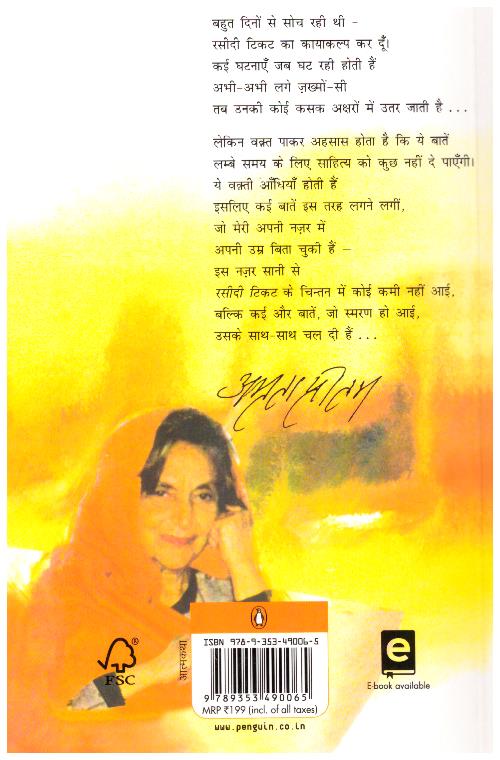 बहुत दिनों से सोच रही थी -
रसीदी टिकट का कायाकल्प कर दूँ।
कई घटनाएँ जब घट रही होती हैं
अभी-अभी लगे ज़ख्मों-सी
तब उनकी कोई कसक अक्षरों में उतर जाती है ...
लेकिन वक़्त पाकर अहसास होता है कि ये बातें
लम्बे समय के लिए साहित्य को कुछ नहीं दे पाएँगी।
ये वक़्ती आँधियाँ होती हैं
इसलिए कई बातें इस तरह लगने लगीं,
जो मेरी अपनी नज़र में
अपनी उम्र बिता चुकी हैं –
इस नज़र सानी से
रसीदी टिकट के चिन्तन में कोई कमी नहीं आई,
बल्कि कई और बातें, जो स्मरण हो आई,
उसके साथ-साथ चल दी हैं ...
अमृता प्रीतम
आत्मकथा
FSC
®
ISBN 978-9-353-49006-5
9 789353 490065
MRP ₹199 (incl. of all taxes)
www.penguin.co.in
e
E-book available